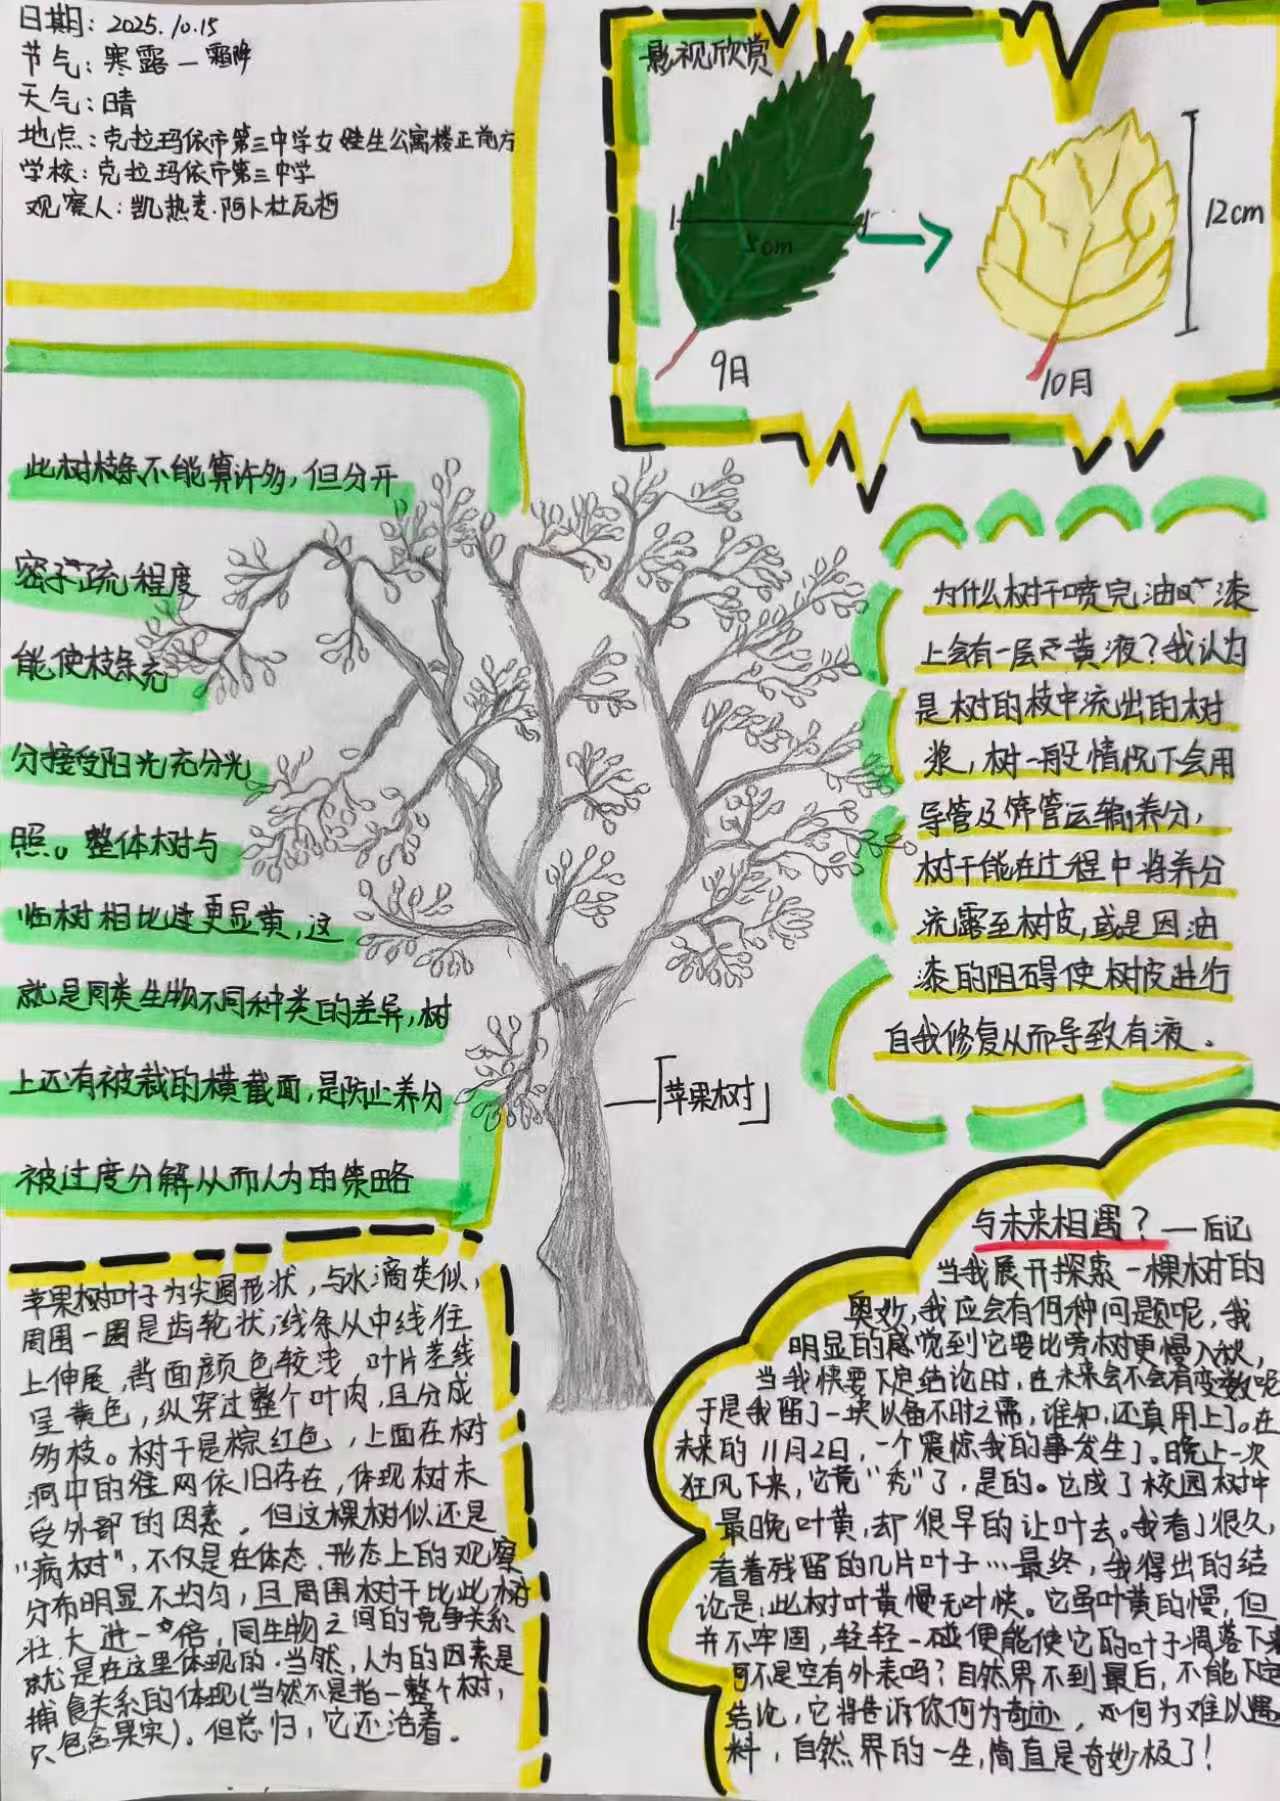 日期：2025.10.15
节气：寒露—霜降
天气：晴
地点：克拉玛依市第三中学女生公寓楼正前方
学校：克拉玛依市第三中学
观察人：凯热麦·阿卜杜瓦柯
影视欣赏
5cm
12cm
9月
10月
此树枝条不能算许多，但分开
密疏程度
能使枝条充
分接受阳光充分光
照。整体树与
临树相比连更显黄，这
就是同类生物不同种类的差异，树
上还有被裁的横截面，是防止养分
被过度分解从而人为的策略
为什么树干喷完油漆
上会有一层黄液？我认为
是树的枝中流出的树
浆，树一般情况下会用
导管及筛管运输养分，
树干能在过程中将养分
流露至树皮，或是因油
漆的阻碍使树皮进行
自我修复从而导致有液。
「苹果树」
苹果树叶子为尖圆形状，与水滴类似，
周围一圈是齿轮状，线条从中线往
上伸展，背面颜色较浅，叶片茎线
呈黄色，纵穿过整个叶肉，且分成
多枝。树干是棕红色，上面在树
洞中的网依旧存在，体现树未
受外部的因素。但这棵树似还是
“病树”，不仅是在体态、形态上的观察
分布明显不均匀，且周围树干比此树
壮大进一倍，同生物之间的竞争关系
就是在这里体现的。当然，人为的因素是
捕食关系的体现（当然不是指一整个树，
只包含果实）。但总归，它还活着。
与未来相遇？——后记
当我展开探索一棵树的
奥妙，我应会有何种问题呢，我
明显的感觉到它要比旁树更慢入秋，
当我快要下定结论时，在未来会不会有变数呢
于是我留了一块以备不时之需，谁知，还真用上了。在
未来的11月2日，一个震惊我的事发生了。晚上一次
狂风下来，它竟“秃”了，是的。它成了校园树中
最晚叶黄，却很早的让叶去。我看了很久，
看着残留的几片叶子…最终，我得出的结
论是：此树叶黄慢无叶快。它虽叶黄的慢，但
并不牢固，轻轻一碰便能使它的叶子凋落下来
可不是空有外表吗？自然界不到最后，不能下定
结论，它将告诉你何为奇迹，何为难以遇
料，自然界的一生，简直是奇妙极了！